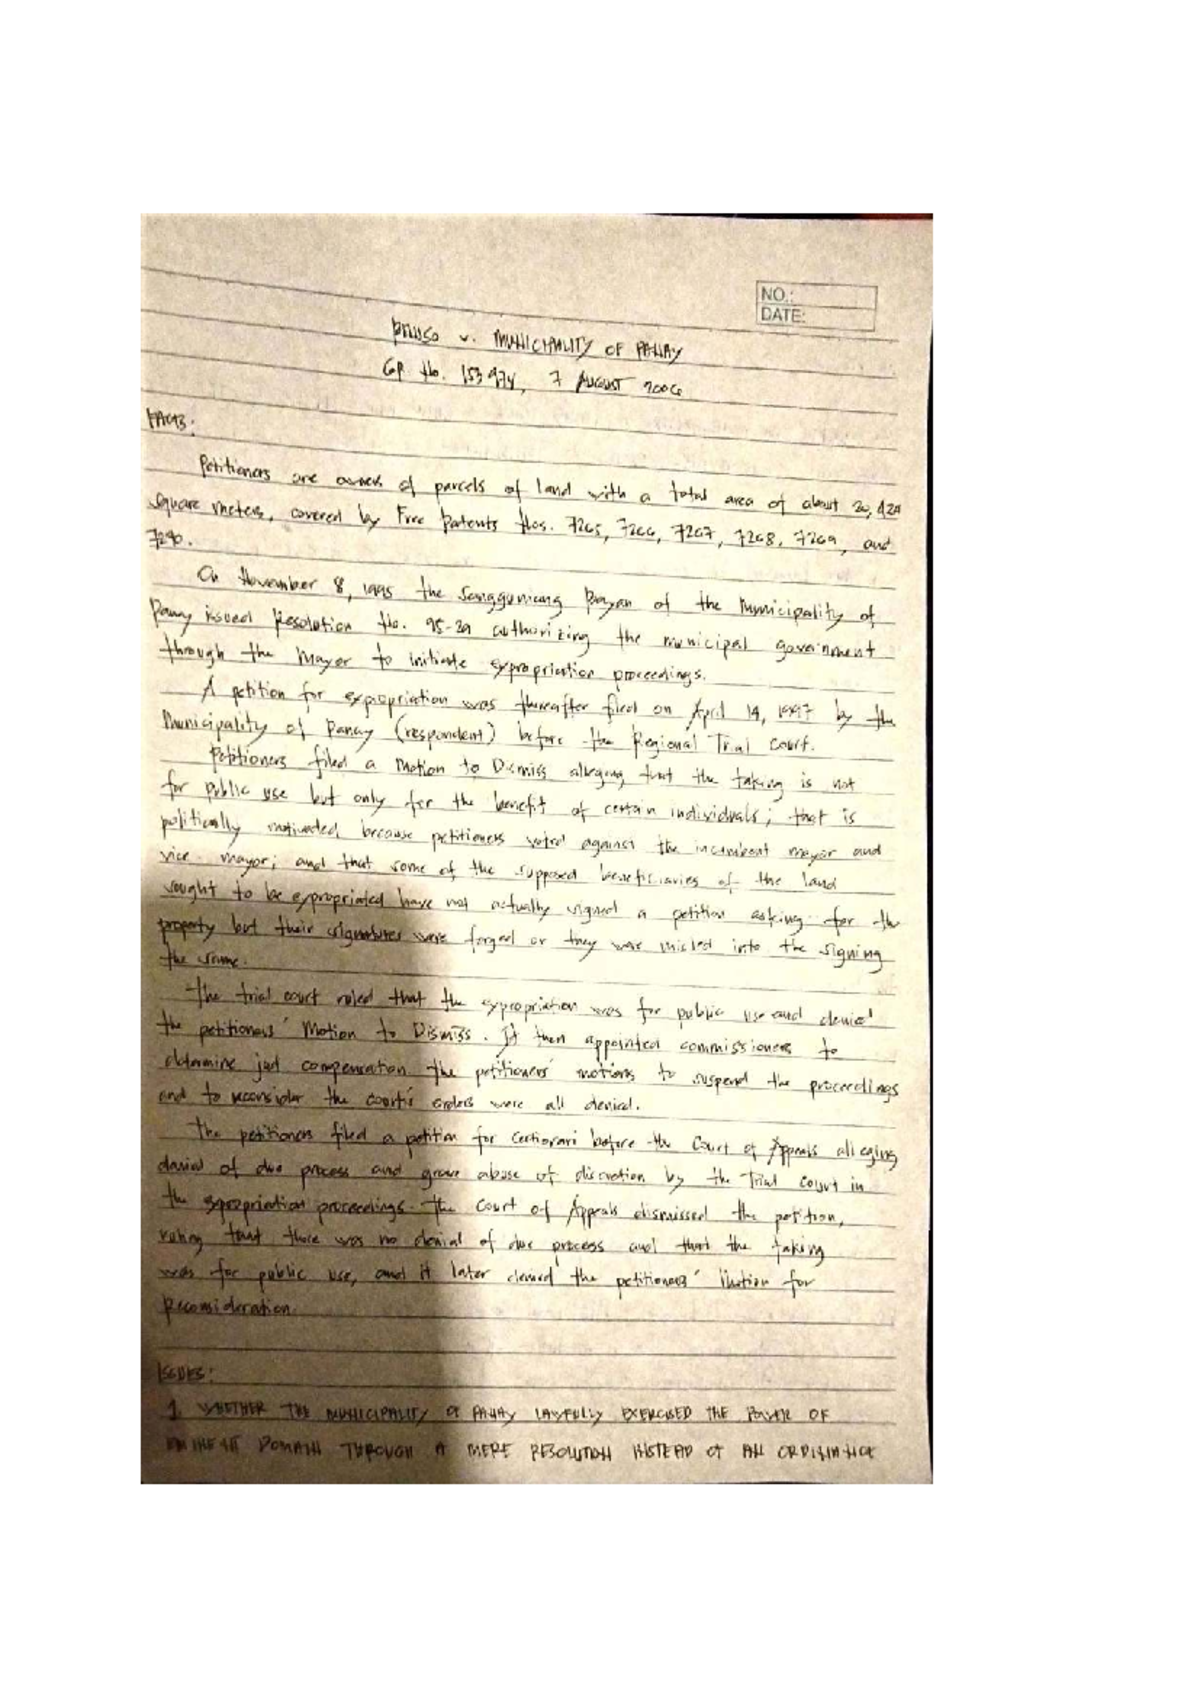 NO.:
DATE:
BELUSO v. MUNICIPALITY OF PANAY
GR No. 153974, 7 AUGUST 2006
FACTS:
Petitioners are owners of parcels of land with a total area of about 20,424
square meters, covered by Free Patents Nos. 7265, 7266, 7267, 7268, 7269, and
7270.
On November 8, 1995 the Sangguniang Bayan of the Municipality of
Panay issued Resolution No. 95-29 authorizing the municipal government
through the Mayor to initiate expropriation proceedings.
A petition for expropriation was thereafter filed on April 14, 1997 by the
Municipality of Panay (respondent) before the Regional Trial Court.
Petitioners filed a Motion to Dismiss alleging that the taking is not
for public use but only for the benefit of certain individuals; that is
politically motivated because petitioners voted against the incumbent mayor and
vice mayor; and that some of the supposed beneficiaries of the land
sought to be expropriated have not actually signed a petition asking for the
property but their signatures were forged or they were misled into the signing
the same.
The trial court ruled that the expropriation was for public use and denied
the petitioners' Motion to Dismiss. It then appointed commissioners to
determine just compensation. The petitioners' motions to suspend the proceedings
and to reconsider the court's orders were all denied.
The petitioners filed a petition for certiorari before the Court of Appeals alleging
denial of due process and grave abuse of discretion by the Trial Court in
the expropriation proceedings. The Court of Appeals dismissed the petition,
ruling that there was no denial of due process and that the taking
was for public use, and it later denied the petitioners' Motion for
Reconsideration.
ISSUES:
1. WHETHER THE MUNICIPALITY OF PANAY LAWFULLY EXERCISED THE POWER OF
EMINENT DOMAIN THROUGH A MERE RESOLUTION INSTEAD OF AN ORDINANCE